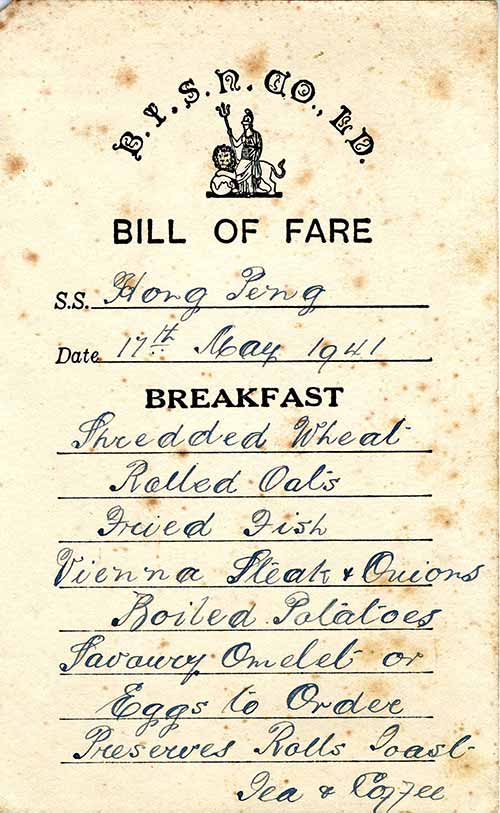 B.Y.S.N. CO., LD.
BILL OF FARE
S.S. Hong Peng
Date 17th May 1941
BREAKFAST
Shredded Wheat
Rolled Oats
Fried Fish
Vienna Steak & Onions
Boiled Potatoes
Savoury Omelet or
Eggs to Order
Preserves Rolls Toast
Tea & Coffee